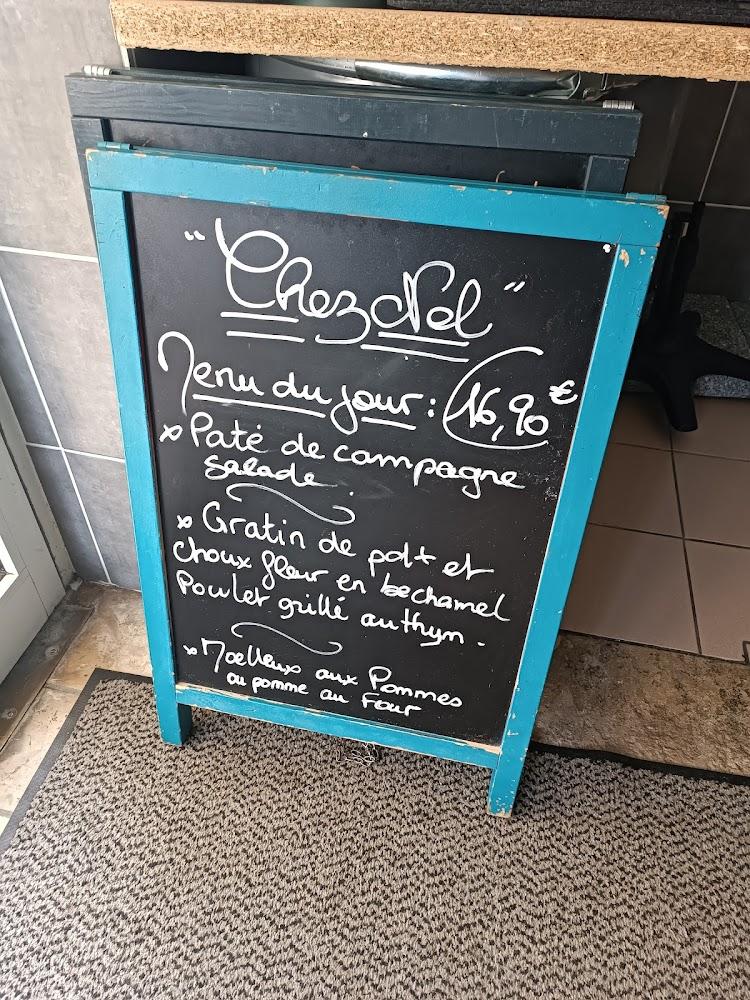 "Chez Nel"
Menu du jour : 16,90€
x Paté de campagne
salade.
x Gratin de pdt et
choux fleur en bechamel
Poulet grillé au thym.
x Moelleux aux Pommes
ou pomme au Four